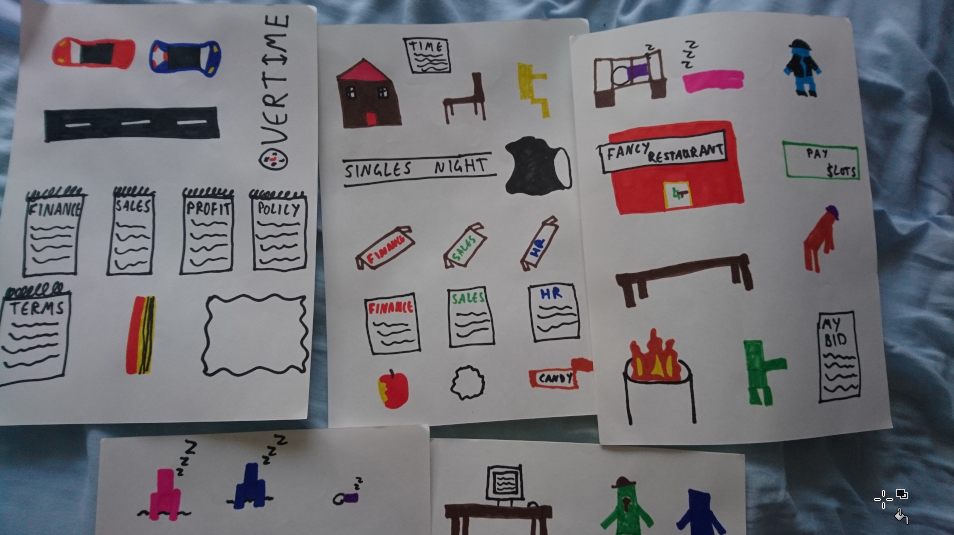 OVERTIME
FINANCE
SALES
PROFIT
POLICY
TERMS
TIME
SINGLES NIGHT
FINANCE
SALES
HR
FINANCE
SALES
HR
CANDY
z
z
z
z
FANCY RESTAURANT
PAY
SLOTS
MY
BID
z
z
z
z
z
z
z
z